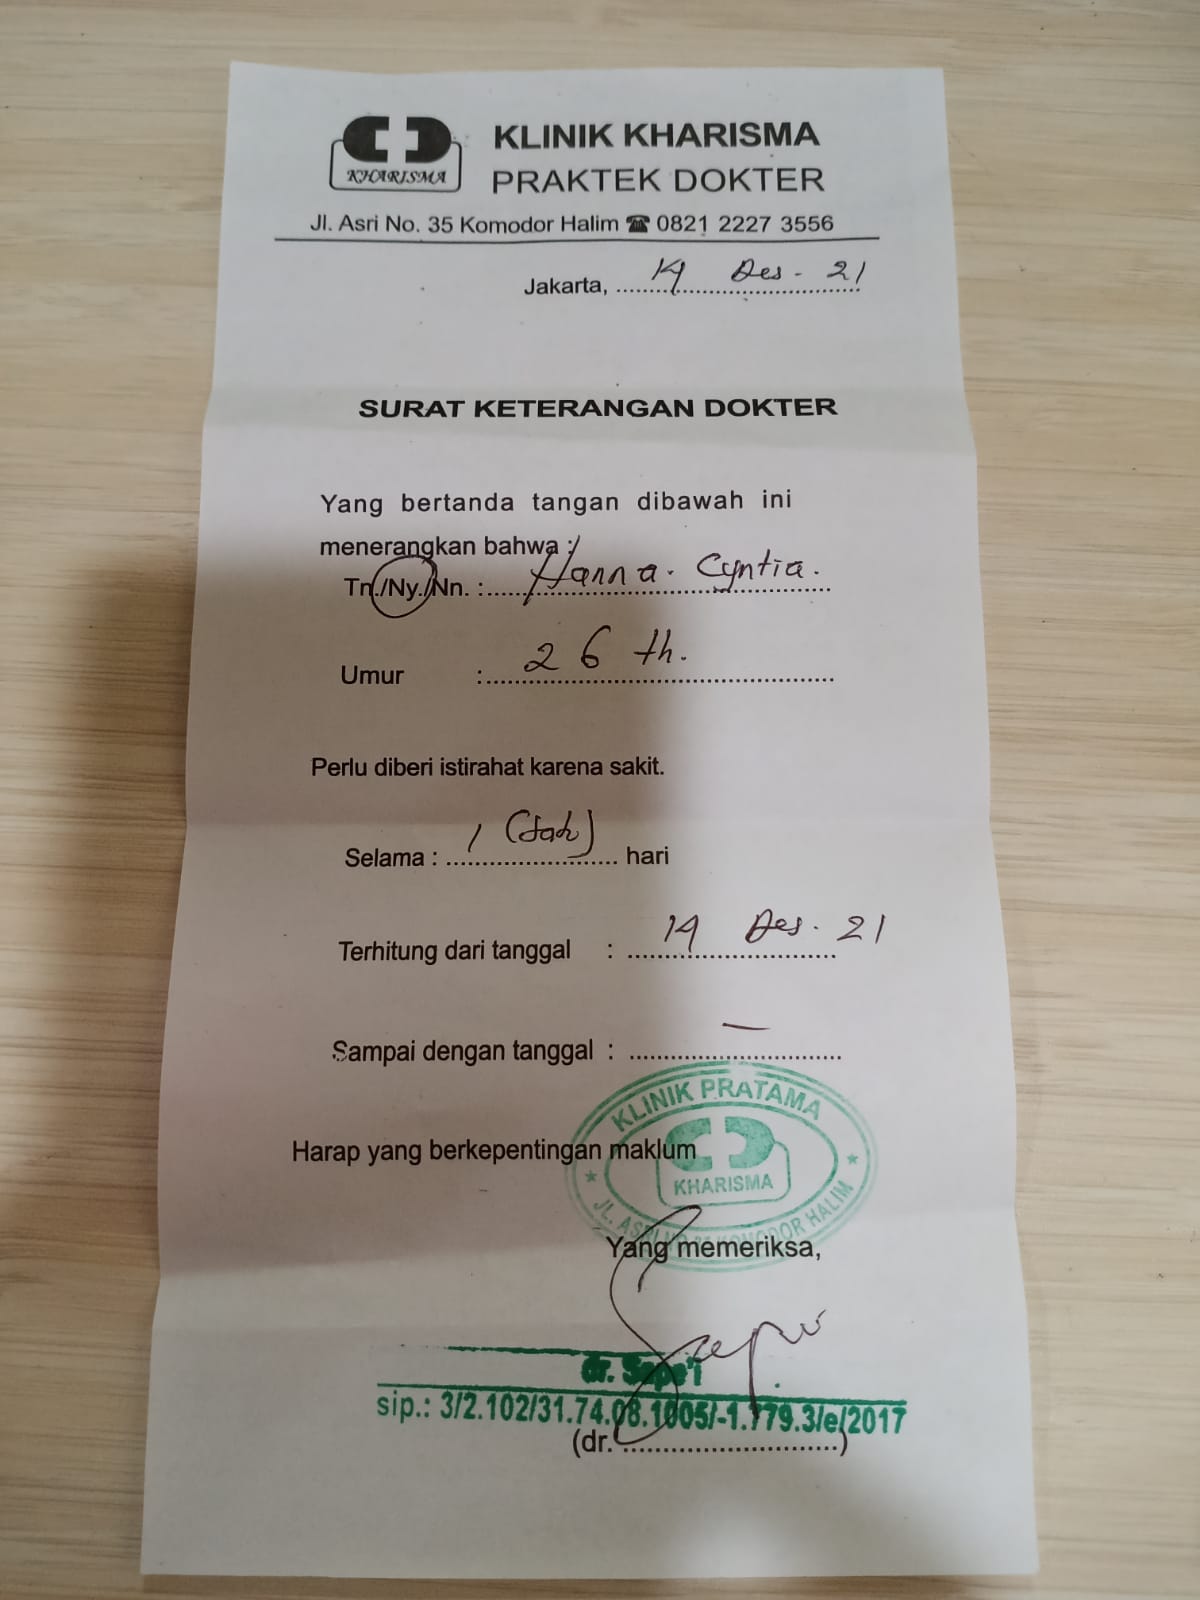 KHARISMA
KLINIK KHARISMA
PRAKTEK DOKTER
Jl. Asri No. 35 Komodor Halim ☎ 0821 2227 3556
Jakarta, 14 Des - 21
SURAT KETERANGAN DOKTER
Yang bertanda tangan dibawah ini
menerangkan bahwa :
Tn./Ny./Nn. : Hanna. Cyntia.
Umur : 26 th.
Perlu diberi istirahat karena sakit.
Selama : 1 hari
Terhitung dari tanggal : 14 Des. 21
Sampai dengan tanggal : —
KLINIK PRATAMA
Harap yang berkepentingan maklum
KHARISMA
JL. ASRI KOMODOR HALIM
Yang memeriksa,
dr. Sape'i
sip.: 3/2.102/31.74.08.1005/-1.779.3/e/2017
(dr. )